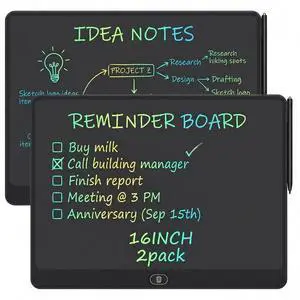 IDEA NOTES
PROJECT 2
Research
Research
hiking spots
Design
Drafting
Sketch logo ideas
Sketch logo
REMINDER BOARD
Buy milk
Call building manager
Finish report
Meeting @ 3 PM
Anniversary (Sep 15th)
16INCH
2pack